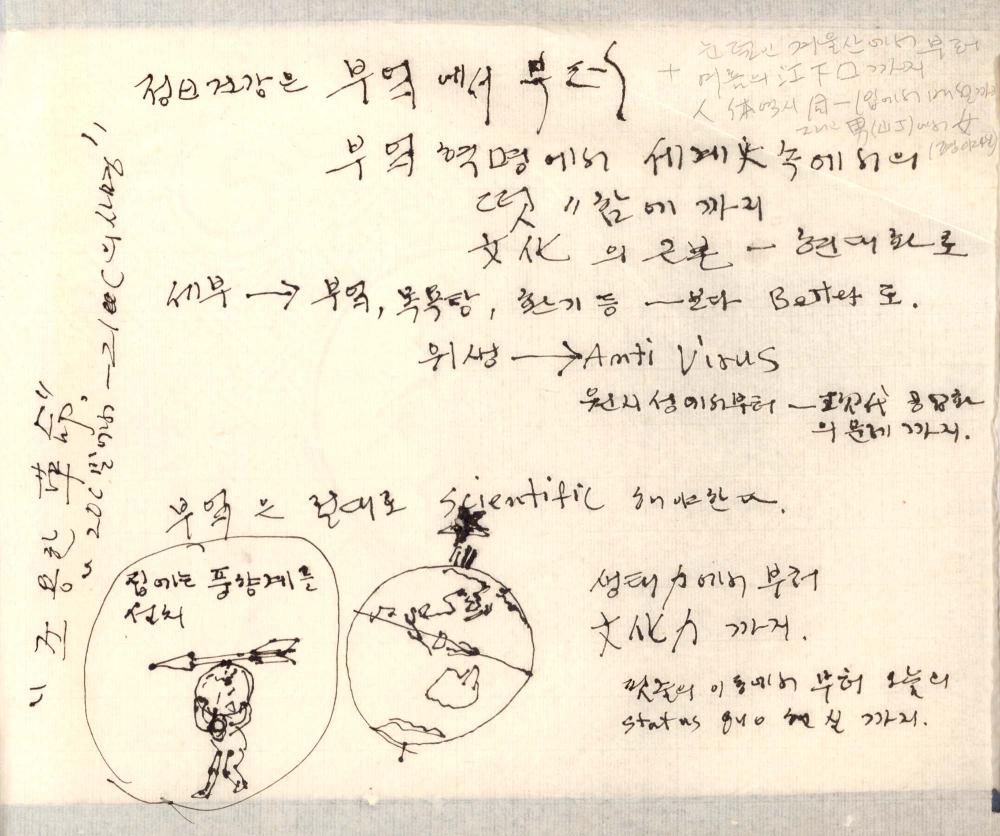 건강은 부엌에서 부터
눈덮인 겨울산에서 부터
+ 여름의 江下口 까지
人体역시
男 에서 女
부엌 혁명에서 세계史 속에서의
떳〃함에 까지
文化의 근본 – 현대화로
세부 → 부엌, 목욕탕, 환기 등 – 보다 Better로.
위생 → Anti Virus
원시성에서부터 – 現代 공업화
의 문제 까지.
"조용한 革命"
"20C말에서 – 21C의 시작"
부엌은 절대로 scientific 해야한다.
집에는 풍향계를
설치
생태力에서 부터
文化力 까지.
민족의 이동에서 부터 오늘의
status quo 현실 까지.